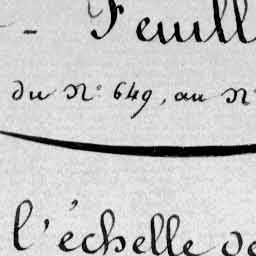 - Feuill
du N° 649, au N°
l'échelle de